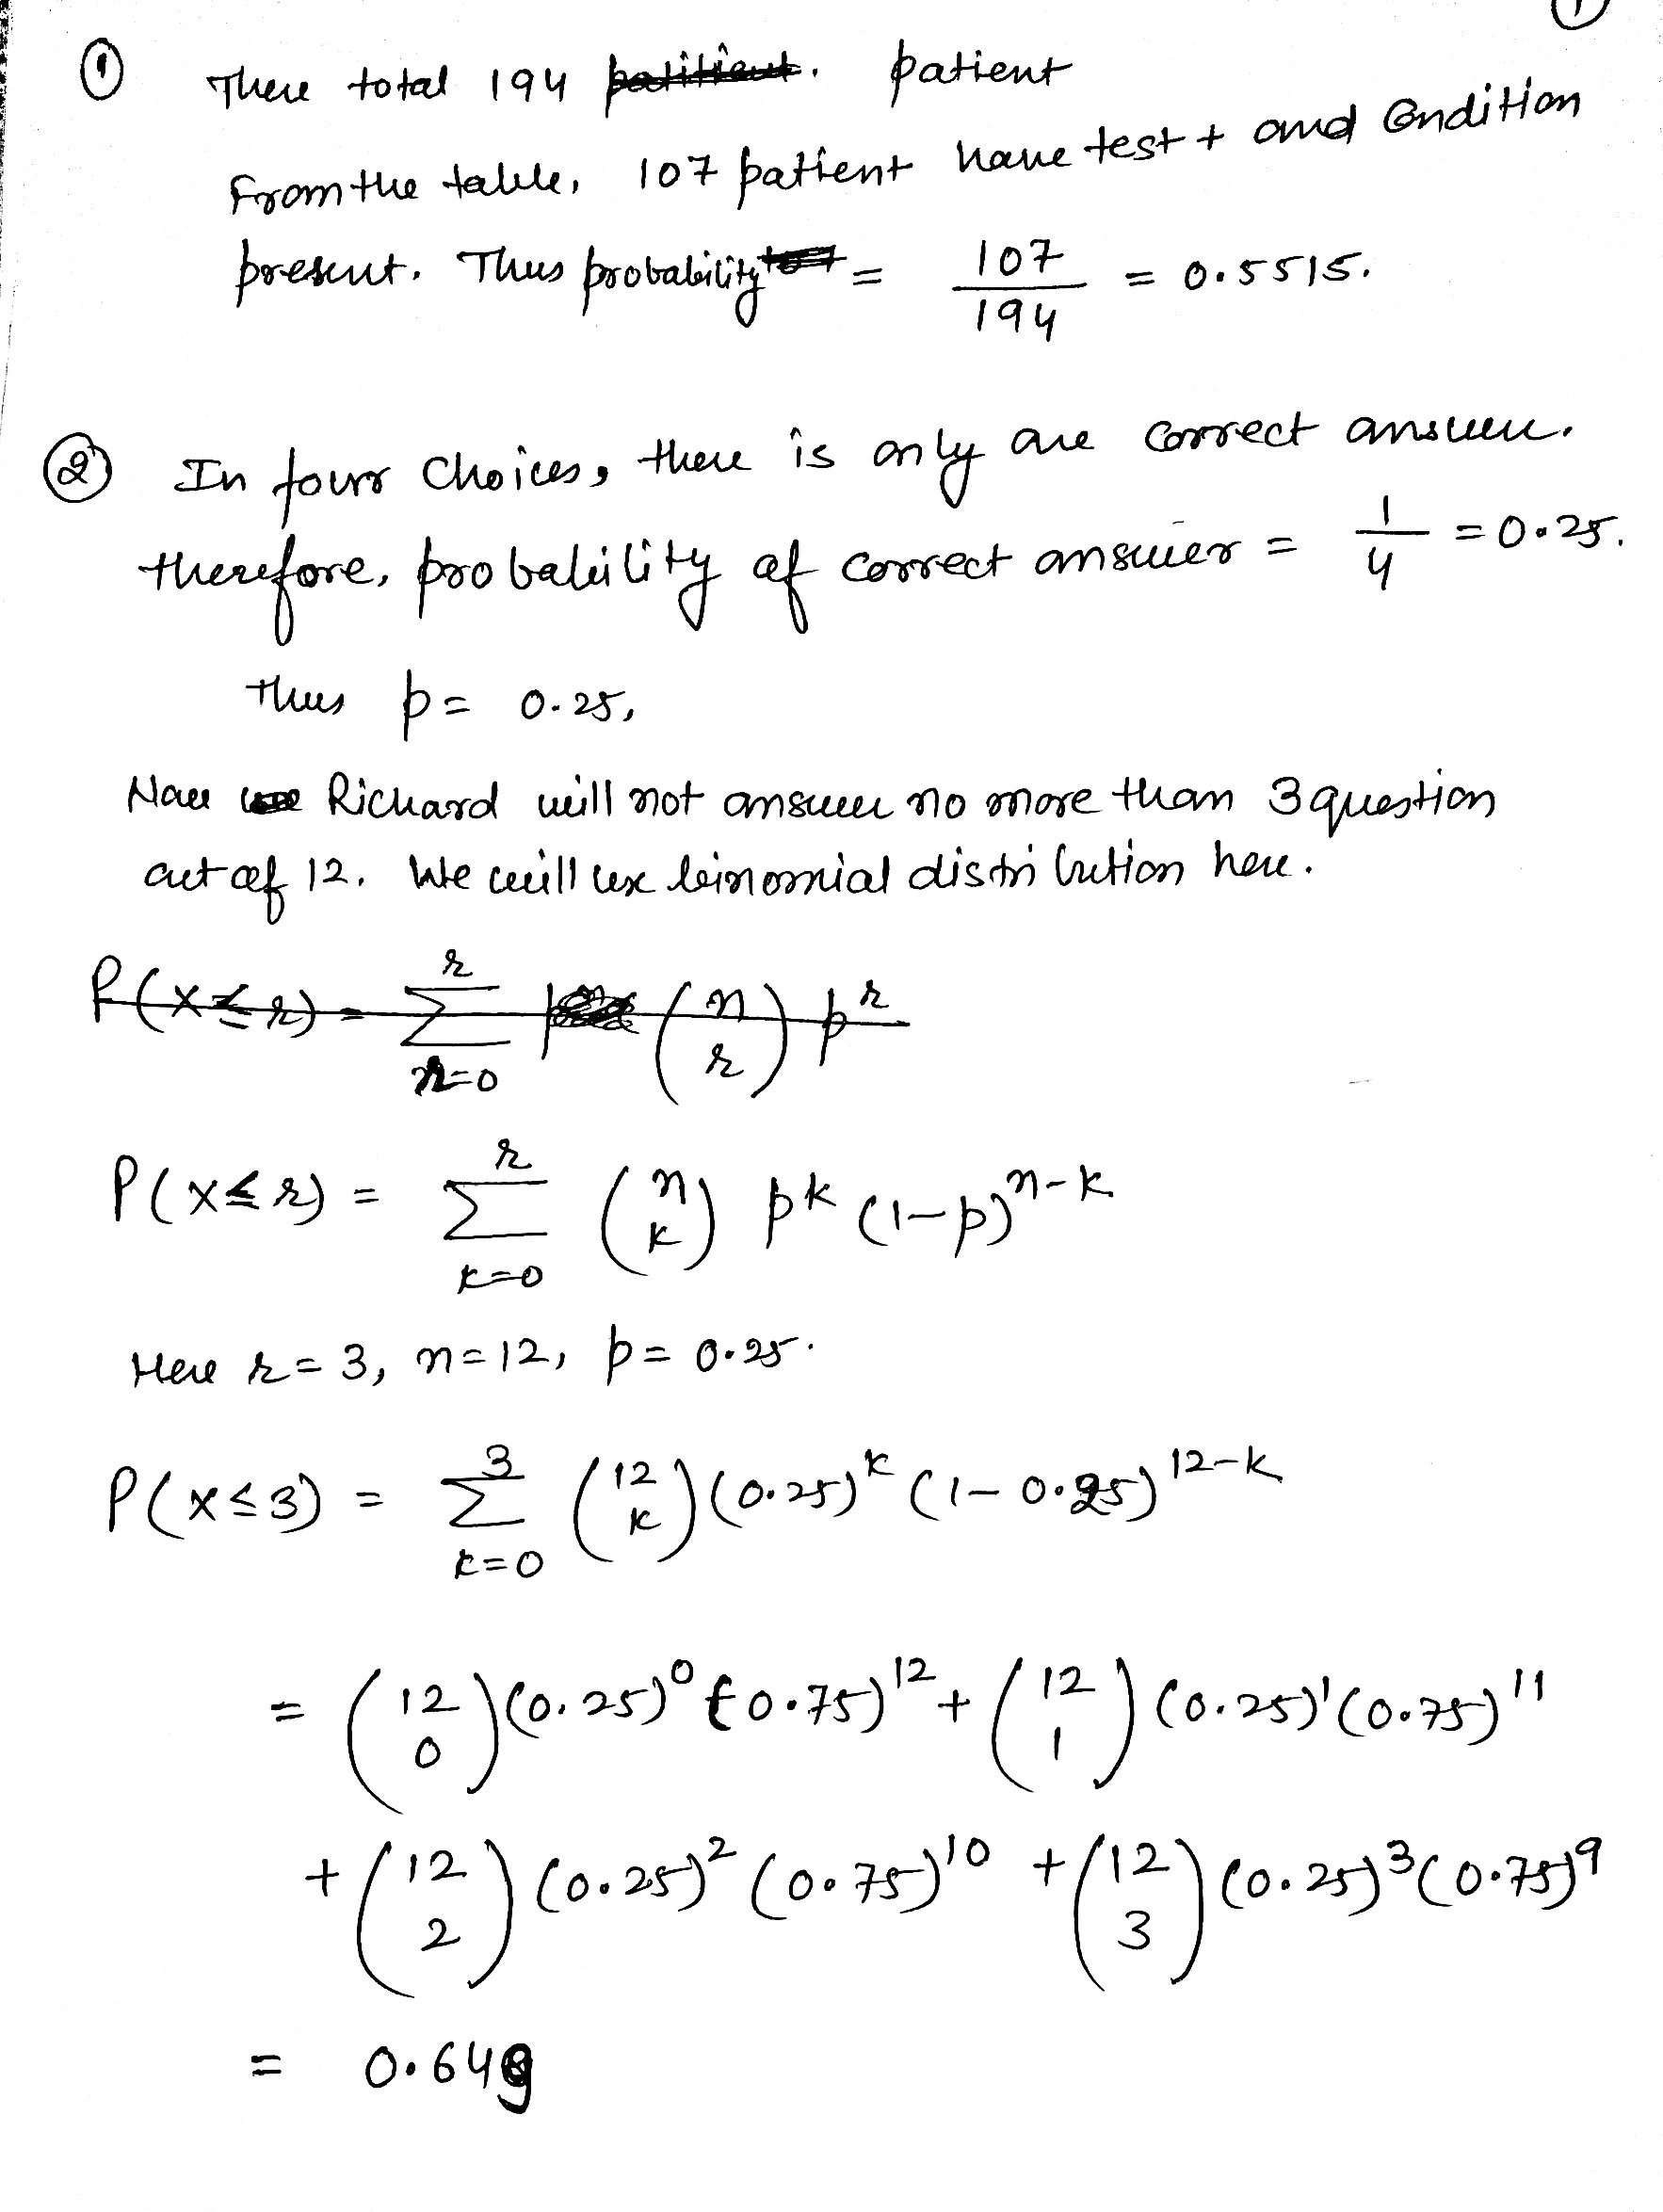 1
① There total 194 patient
From the table, 107 patient have test + and Condition
present. Thus probability = 107/194 = 0.5515.
② In four Choices, there is only one correct answer.
therefore, probability of correct answer = 1/4 = 0.25.
thus p = 0.25,
Now Richard will not answer no more than 3 question
out of 12. We will use binomial distribution here.
P(X≤r) = Σ_{r=0}^{r} (n r) p^r
P(X≤r) = Σ_{k=0}^{r} (n k) p^k (1-p)^{n-k}
Here r = 3, n = 12, p = 0.25.
P(X≤3) = Σ_{k=0}^{3} (12 k) (0.25)^k (1-0.25)^{12-k}
= (12 0) (0.25)^0 (0.75)^12 + (12 1) (0.25)^1 (0.75)^11
+ (12 2) (0.25)^2 (0.75)^10 + (12 3) (0.25)^3 (0.75)^9
= 0.649